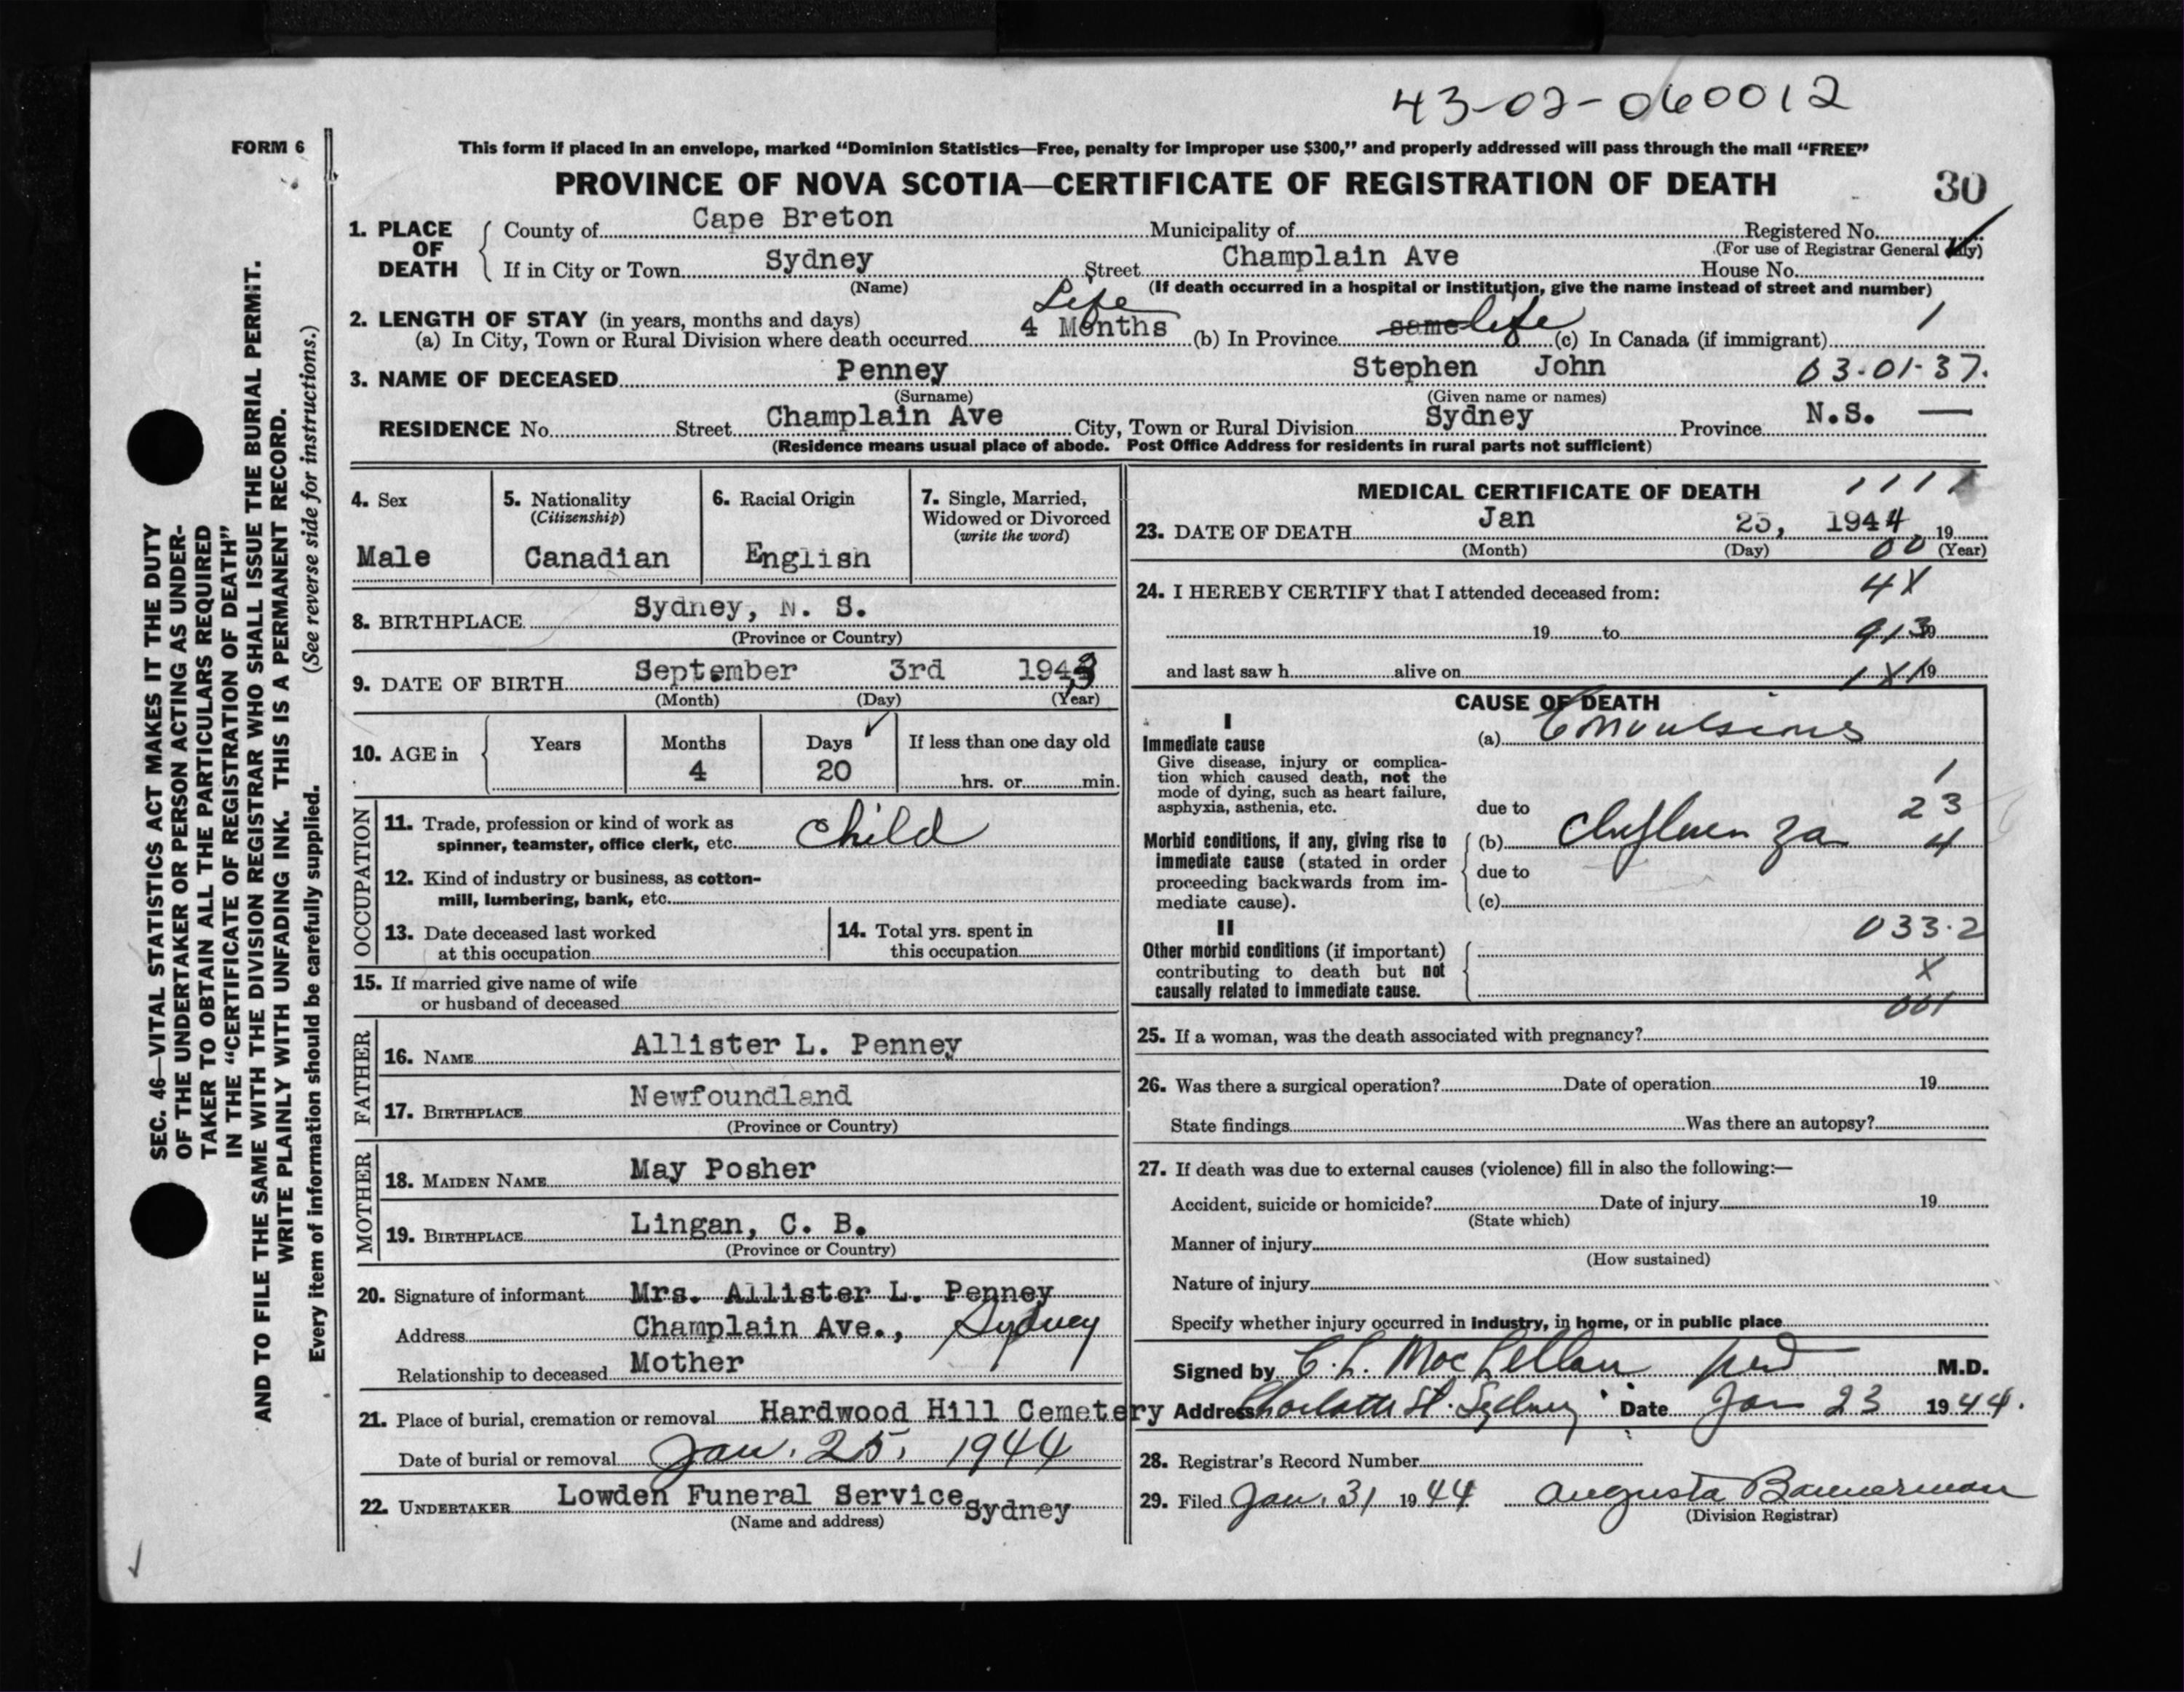 43-02-060012
FORM 6
This form if placed in an envelope, marked “Dominion Statistics—Free, penalty for improper use $300,” and properly addressed will pass through the mail “FREE”
PROVINCE OF NOVA SCOTIA—CERTIFICATE OF REGISTRATION OF DEATH 30
1. PLACE OF DEATH County of Cape Breton Municipality of Registered No.
(For use of Registrar General only)
If in City or Town Sydney Street Champlain Ave House No.
(Name) (If death occurred in a hospital or institution, give the name instead of street and number)
Life
2. LENGTH OF STAY (in years, months and days)
(a) In City, Town or Rural Division where death occurred 4 Months (b) In Province same life (c) In Canada (if immigrant) 1
3. NAME OF DECEASED Penney Stephen John 03-01-37.
(Surname) (Given name or names)
RESIDENCE No. Street Champlain Ave City, Town or Rural Division Sydney Province N.S. —
(Residence means usual place of abode. Post Office Address for residents in rural parts not sufficient)
4. Sex
Male
5. Nationality
(Citizenship)
Canadian
6. Racial Origin
English
7. Single, Married,
Widowed or Divorced
(write the word)
8. BIRTHPLACE Sydney, N. S.
(Province or Country)
9. DATE OF BIRTH September 3rd 1943
(Month) (Day) (Year)
10. AGE in Years Months Days If less than one day old
4 20 hrs. or min.
OCCUPATION
11. Trade, profession or kind of work as
spinner, teamster, office clerk, etc. child
12. Kind of industry or business, as cotton-
mill, lumbering, bank, etc.
13. Date deceased last worked
at this occupation
14. Total yrs. spent in
this occupation
15. If married give name of wife
or husband of deceased
FATHER
16. NAME Allister L. Penney
17. BIRTHPLACE Newfoundland
(Province or Country)
MOTHER
18. MAIDEN NAME May Posher
19. BIRTHPLACE Lingan, C. B.
(Province or Country)
20. Signature of informant Mrs. Allister L. Penney
Address Champlain Ave., Sydney
Relationship to deceased Mother
21. Place of burial, cremation or removal Hardwood Hill Cemetery
Date of burial or removal Jan. 25, 1944
22. UNDERTAKER Lowden Funeral Service Sydney
(Name and address)
MEDICAL CERTIFICATE OF DEATH 1 1 1 1
23. DATE OF DEATH Jan 23, 1944 19
(Month) (Day) 00 (Year)
24. I HEREBY CERTIFY that I attended deceased from: 4X
19 to 913 19
and last saw h alive on 1X1 19
CAUSE OF DEATH
I
Immediate cause
Give disease, injury or complica-
tion which caused death, not the
mode of dying, such as heart failure,
asphyxia, asthenia, etc.
(a) Convulsions
1
due to 23
Morbid conditions, if any, giving rise to
immediate cause (stated in order
proceeding backwards from im-
mediate cause).
(b) Influenza 4
due to
(c)
033.2
II
Other morbid conditions (if important)
contributing to death but not
causally related to immediate cause.
X
001
25. If a woman, was the death associated with pregnancy?
26. Was there a surgical operation? Date of operation 19
State findings Was there an autopsy?
27. If death was due to external causes (violence) fill in also the following:—
Accident, suicide or homicide? Date of injury 19
(State which)
Manner of injury
(How sustained)
Nature of injury
Specify whether injury occurred in industry, in home, or in public place
Signed by C. L. MacLellan M.D.
Address Charlotte St. Sydney Date Jan 23 1944.
28. Registrar's Record Number
29. Filed Jan. 31 1944 Augusta Bannerman
(Division Registrar)
SEC. 46—VITAL STATISTICS ACT MAKES IT THE DUTY
OF THE UNDERTAKER OR PERSON ACTING AS UNDER-
TAKER TO OBTAIN ALL THE PARTICULARS REQUIRED
IN THE “CERTIFICATE OF REGISTRATION OF DEATH”
AND TO FILE THE SAME WITH THE DIVISION REGISTRAR WHO SHALL ISSUE THE BURIAL PERMIT.
WRITE PLAINLY WITH UNFADING INK. THIS IS A PERMANENT RECORD.
Every item of information should be carefully supplied. (See reverse side for instructions.)